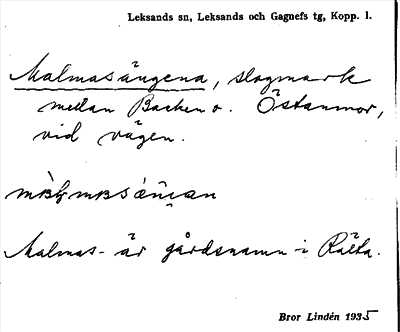 Leksands sn, Leksands och Gagnefs tg, Kopp. l.
Malmasängena, slogmark
mellan Backen o. Östanmor,
vid vägen.
Malmas- är gårdsnamn i Rälta.
Bror Lindén 1935